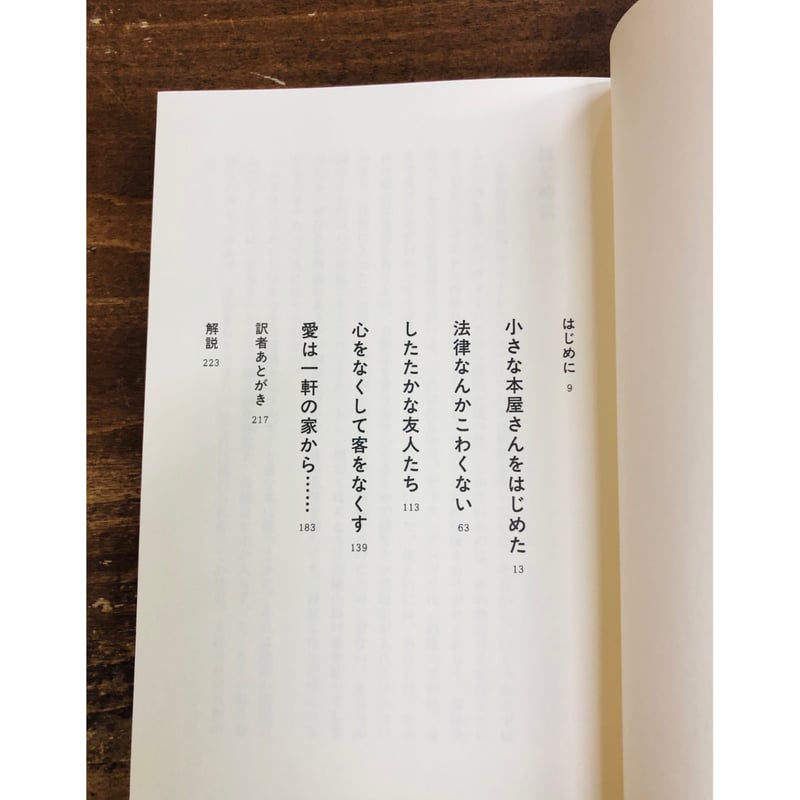 はじめに 9
小さな本屋さんをはじめた 13
法律なんかこわくない 63
したたかな友人たち 113
心をなくして客をなくす 139
愛は一軒の家から…… 183
訳者あとがき 217
解説 223